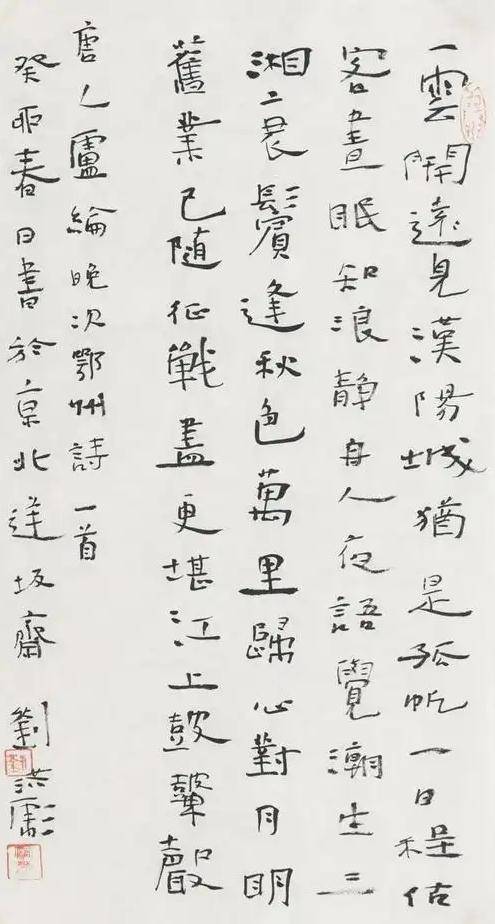 雲開遠見漢陽城猶是孤帆一日程估
客晝眠知浪靜舟人夜語覺潮生三
湘衰鬢逢秋色萬里歸心對月明
舊業已隨征戰盡更堪江上鼓鼙聲
唐人盧綸晚次鄂州詩一首
癸卯春日書於京北逢坂齋 劉洪彪